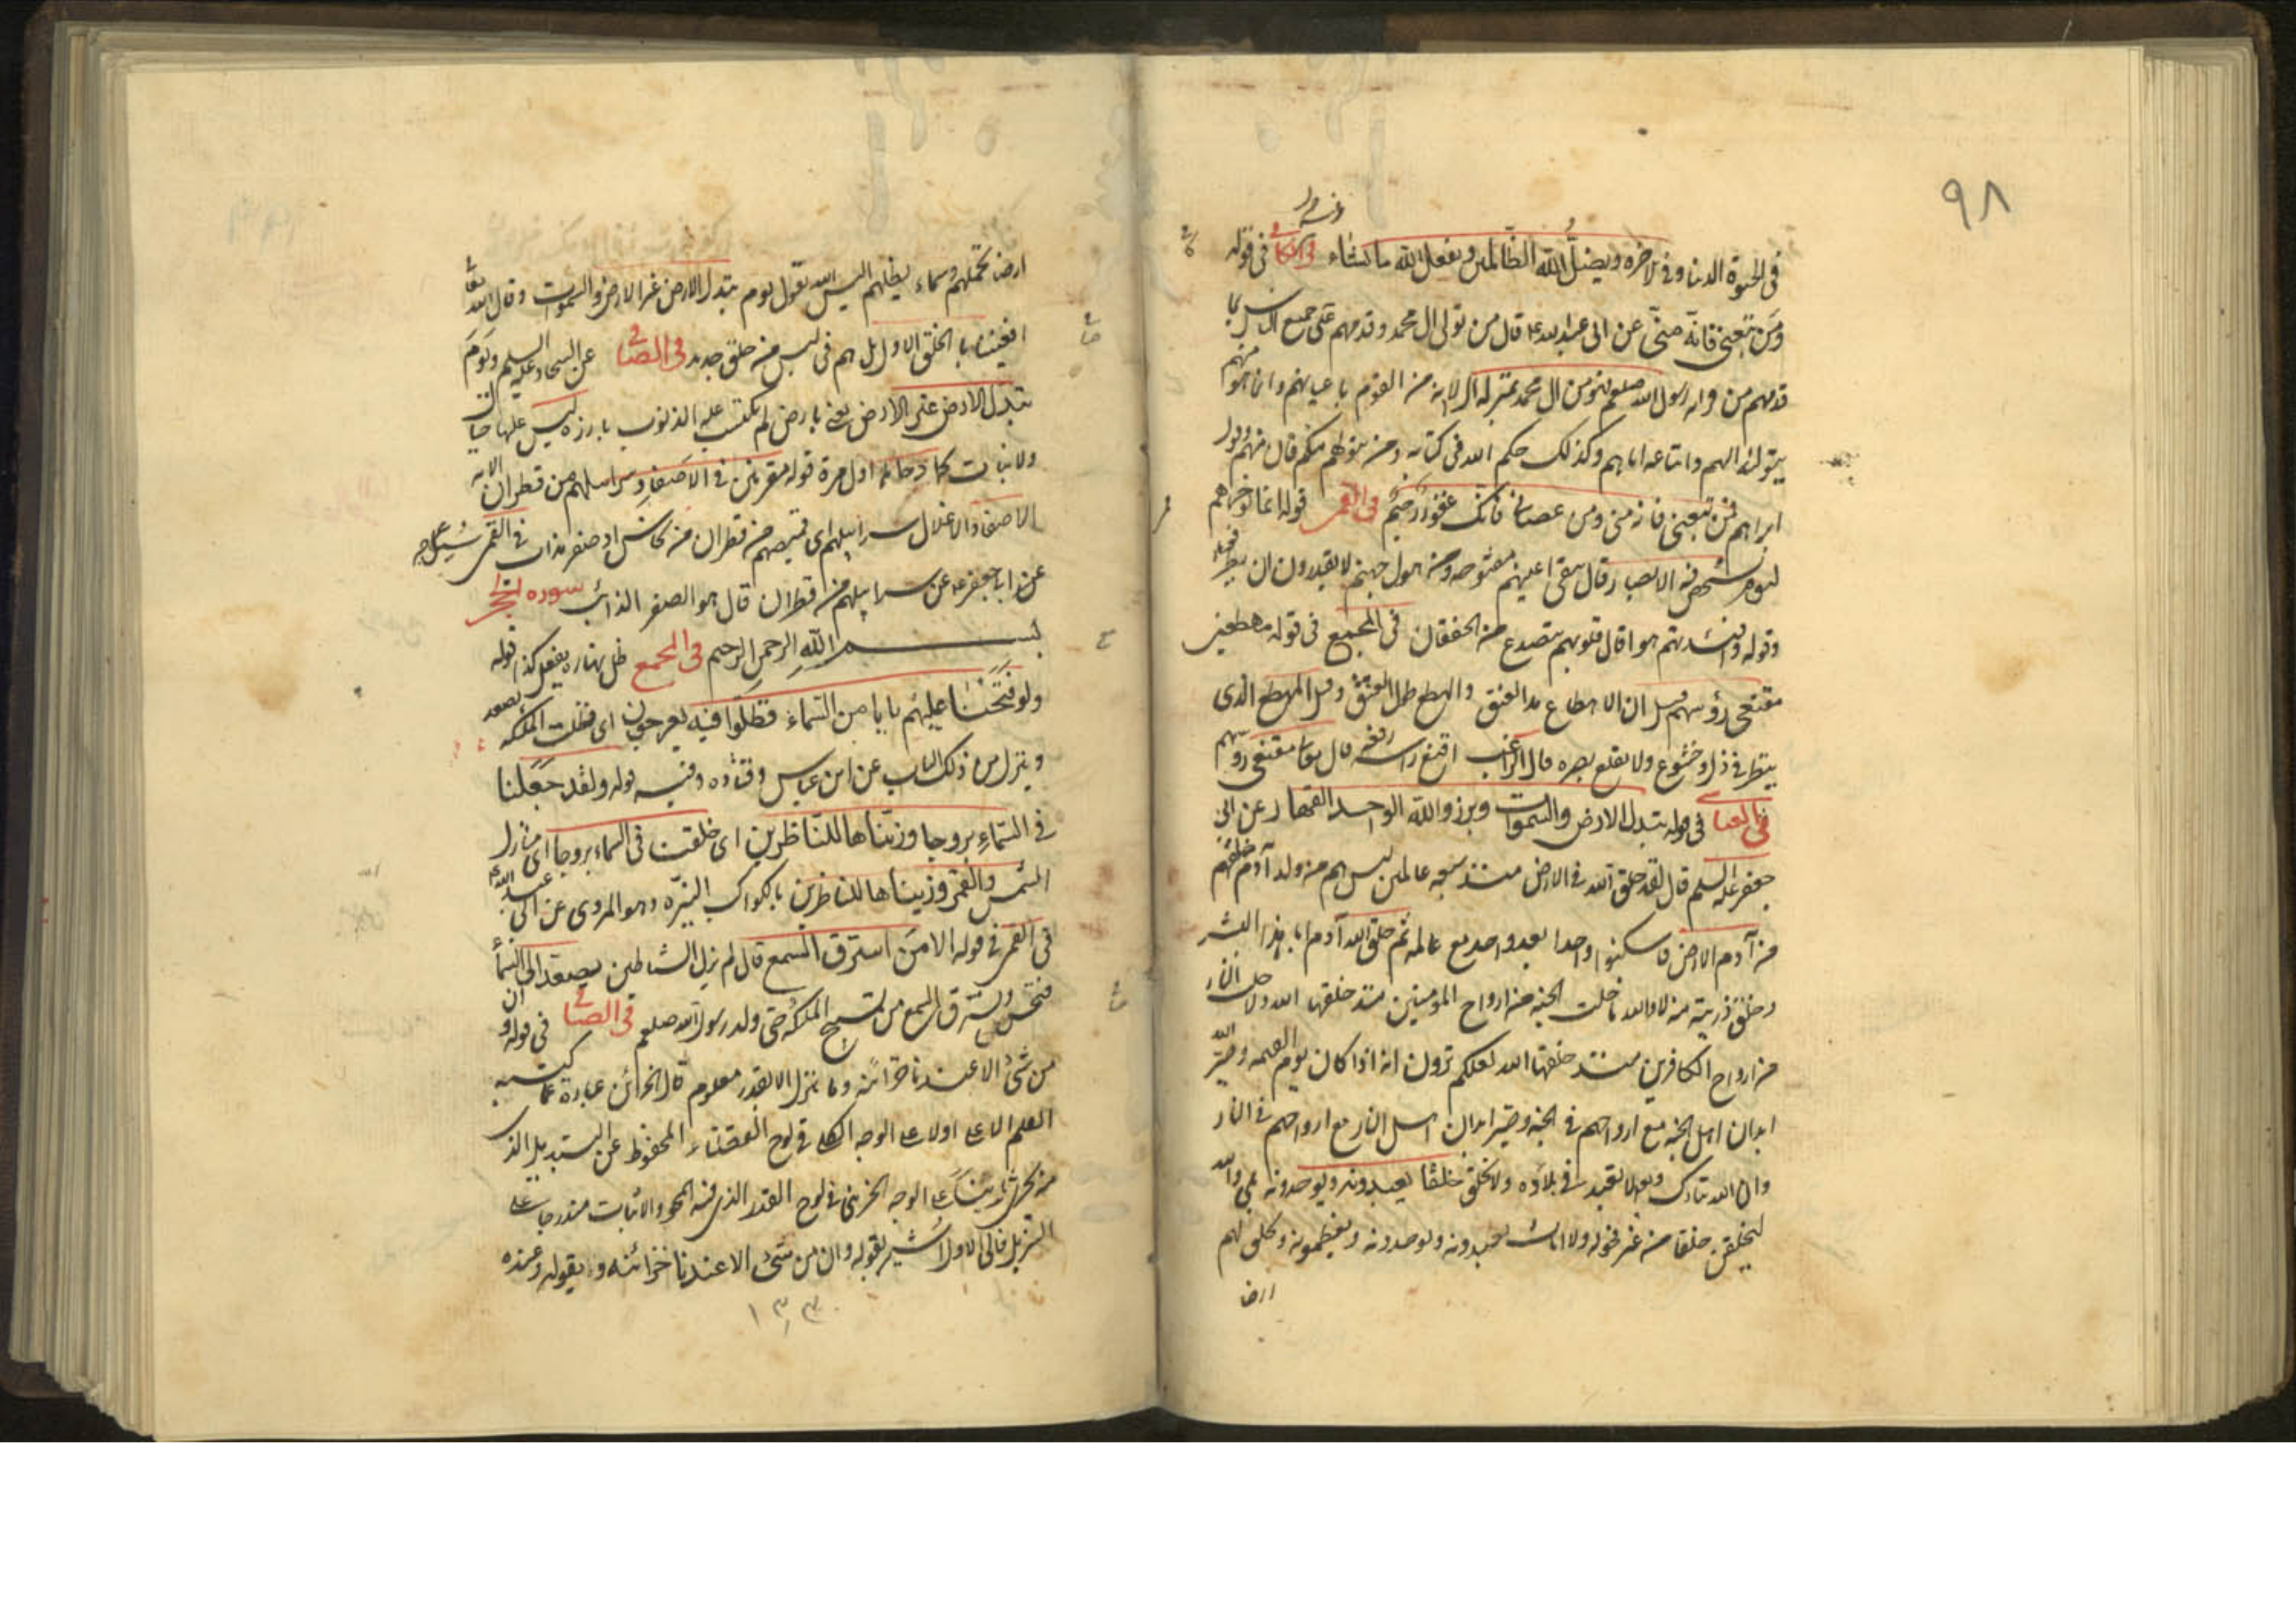 ٩٨
في الحيوة الدنيا وفي الاخره ويضل الله الظالمين ويفعل الله ما يشاء في الكافي في قوله
ومن تبعني فانه مني عن ابي عبد الله ع قال من تولى ال محمد وقدمهم على جميع الناس بما
قدمهم من قرابة رسول الله صلعم فهو من ال محمد بمنزلة ال لا انه من القوم باعيانهم وانما هو منهم
بتوليه اليهم واتباعه اياهم وكذلك حكم الله في كتابه ومن يتولهم منكم فانه منهم وقول
ابراهيم فمن تبعني فانه مني ومن عصاني فانك غفور رحيم في القمي قوله انما نؤخرهم
ليوم تشخص فيه الابصار قال تبقى اعينهم مفتوحه من هول جهنم لا يقدرون ان يطرفوا
وقوله وافئدتهم هواء قال قلوبهم تتصدع من الخفقان في المجمع في قوله مهطعين
مقنعي رؤسهم قيل ان الاهطاع مد العنق والهطع طول العنق وقيل المهطع الذي
ينظر في ذل وخشوع ولا يقلع بصره قال الراغب اقنع راسه رفعه قال تعالى مقنعي رؤسهم
في الصافي في قوله تبدل الارض والسموات وبرزوا لله الواحد القهار عن ابي
جعفر عليه السلم قال لقد خلق الله في الارض منذ سبعه عالمين ليس هم من ولد آدم خلقهم
من آدم الارض فاسكنوها واحدا بعد واحد مع عالمه ثم خلق الله آدم ابا هذا البشر
وخلق ذريته منه لا والله ما خلت الجنه من ارواح المؤمنين منذ خلقها الله ولا خلت النار
من ارواح الكافرين منذ خلقها الله لعلكم ترون انه اذا كان يوم القيمه وصير الله
ابدان اهل الجنه مع ارواحهم في الجنه وصير ابدان اهل النار مع ارواحهم في النار
وان الله تبارك وتعالى لا يعبد في بلاده ولا يخلق خلقا يعبدونه ويوحدونه بلى والله
ليخلقن خلقا من غير فحوله ولا اناث يعبدونه ويوحدونه ويعظمونه ويخلق لهم
ارض
ارضا تحملهم وسماء يظلهم اليس الله يقول يوم تبدل الارض غير الارض والسموات وقال الله تعالى
افعيينا بالخلق الاول بل هم في لبس من خلق جديد في الصافي عن السجاد عليه السلم ويوم
تبدل الارض غير الارض يعني بارض لم تكتسب عليها الذنوب بارزه ليس عليها جبال
ولا نبات كما دحاها اول مرة قوله مقرنين في الاصفاد وسرابيلهم من قطران الايه
الاصفاد الاغلال سرابيلهم اي قميصهم من قطران من نحاس او صفر مذاب في القمي
عن ابا جعفر ع عن سرابيلهم من قطران قال هو الصفر الذائب سوره الحجر
بسم الله الرحمن الرحيم في المجمع ظل نهاره يفعل كذا قوله
ولو فتحنا عليهم بابا من السماء فظلوا فيه يعرجون اي فظلت الملئكه تصعد
وينزل من ذلك الباب عن ابن عباس وقتاده وفيه قوله ولقد جعلنا
في السماء بروجا وزيناها للناظرين اي خلقت في السماء بروجا اي منازل
الشمس والقمر وزيناها للناظرين بالكواكب النيره وهو المروي عن ابي عبد الله ع
في القمي في قوله الا من استرق السمع قال لم يزل الشياطين يصعد الى السماء
فتجس وتسترق السمع من تسبيح الملئكه حتى ولد رسول الله صلعم في الصافي في قوله وان
من شئ الا عندنا خزائنه وما ننزله الا بقدر معلوم قال الخزائن عبارة عما كتبه
القلم الاعلى اولا على الوجه الكلي في لوح القضاء المحفوظ عن التبديل الذي
منه يجري ثانيا على الوجه الجزئي في لوح القدر الذي فيه المحو والاثبات مندرجا على
التنزيل فالى الاول اشير بقوله وان من شئ الا عندنا خزائنه و بقوله وعنده